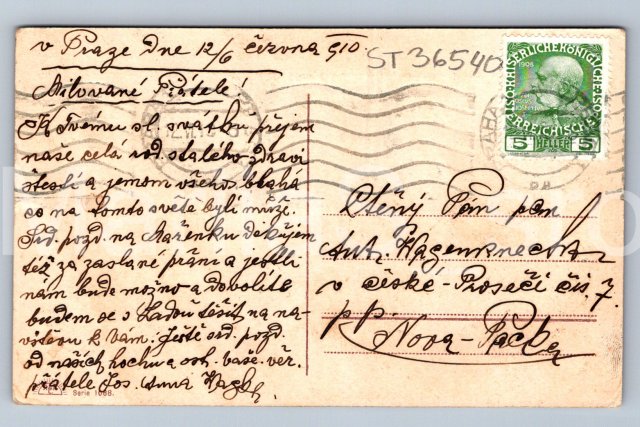 v Praze Dne 12/6 června 910.
ST 36540
Milované Přátelé
K Tvému sl. svátku přejem
naše celá rod. stalého zdraví
štestí a jemom všeho blahá
co na tomto světe byti může.
Srd. pozd. na Mařenku děkujem
též za zaslané práni a jestli
nám bude možno a dovolite
budem se s Laďou těšit na na-
vštevu k Vám. Ještě srd. pozd.
od našich hochu a oth. vaše věr.
přátelé Jos. Anna
Serie 1068.
KAISERLICHEKÖNIGLICHE
1908
ÖSTERREICHISCHE
5 HELLER 5
Ctěný Pan pan
Ant. Wagenknecht
v české-Proseči čís. 7.
p.p.
Nova-Packa